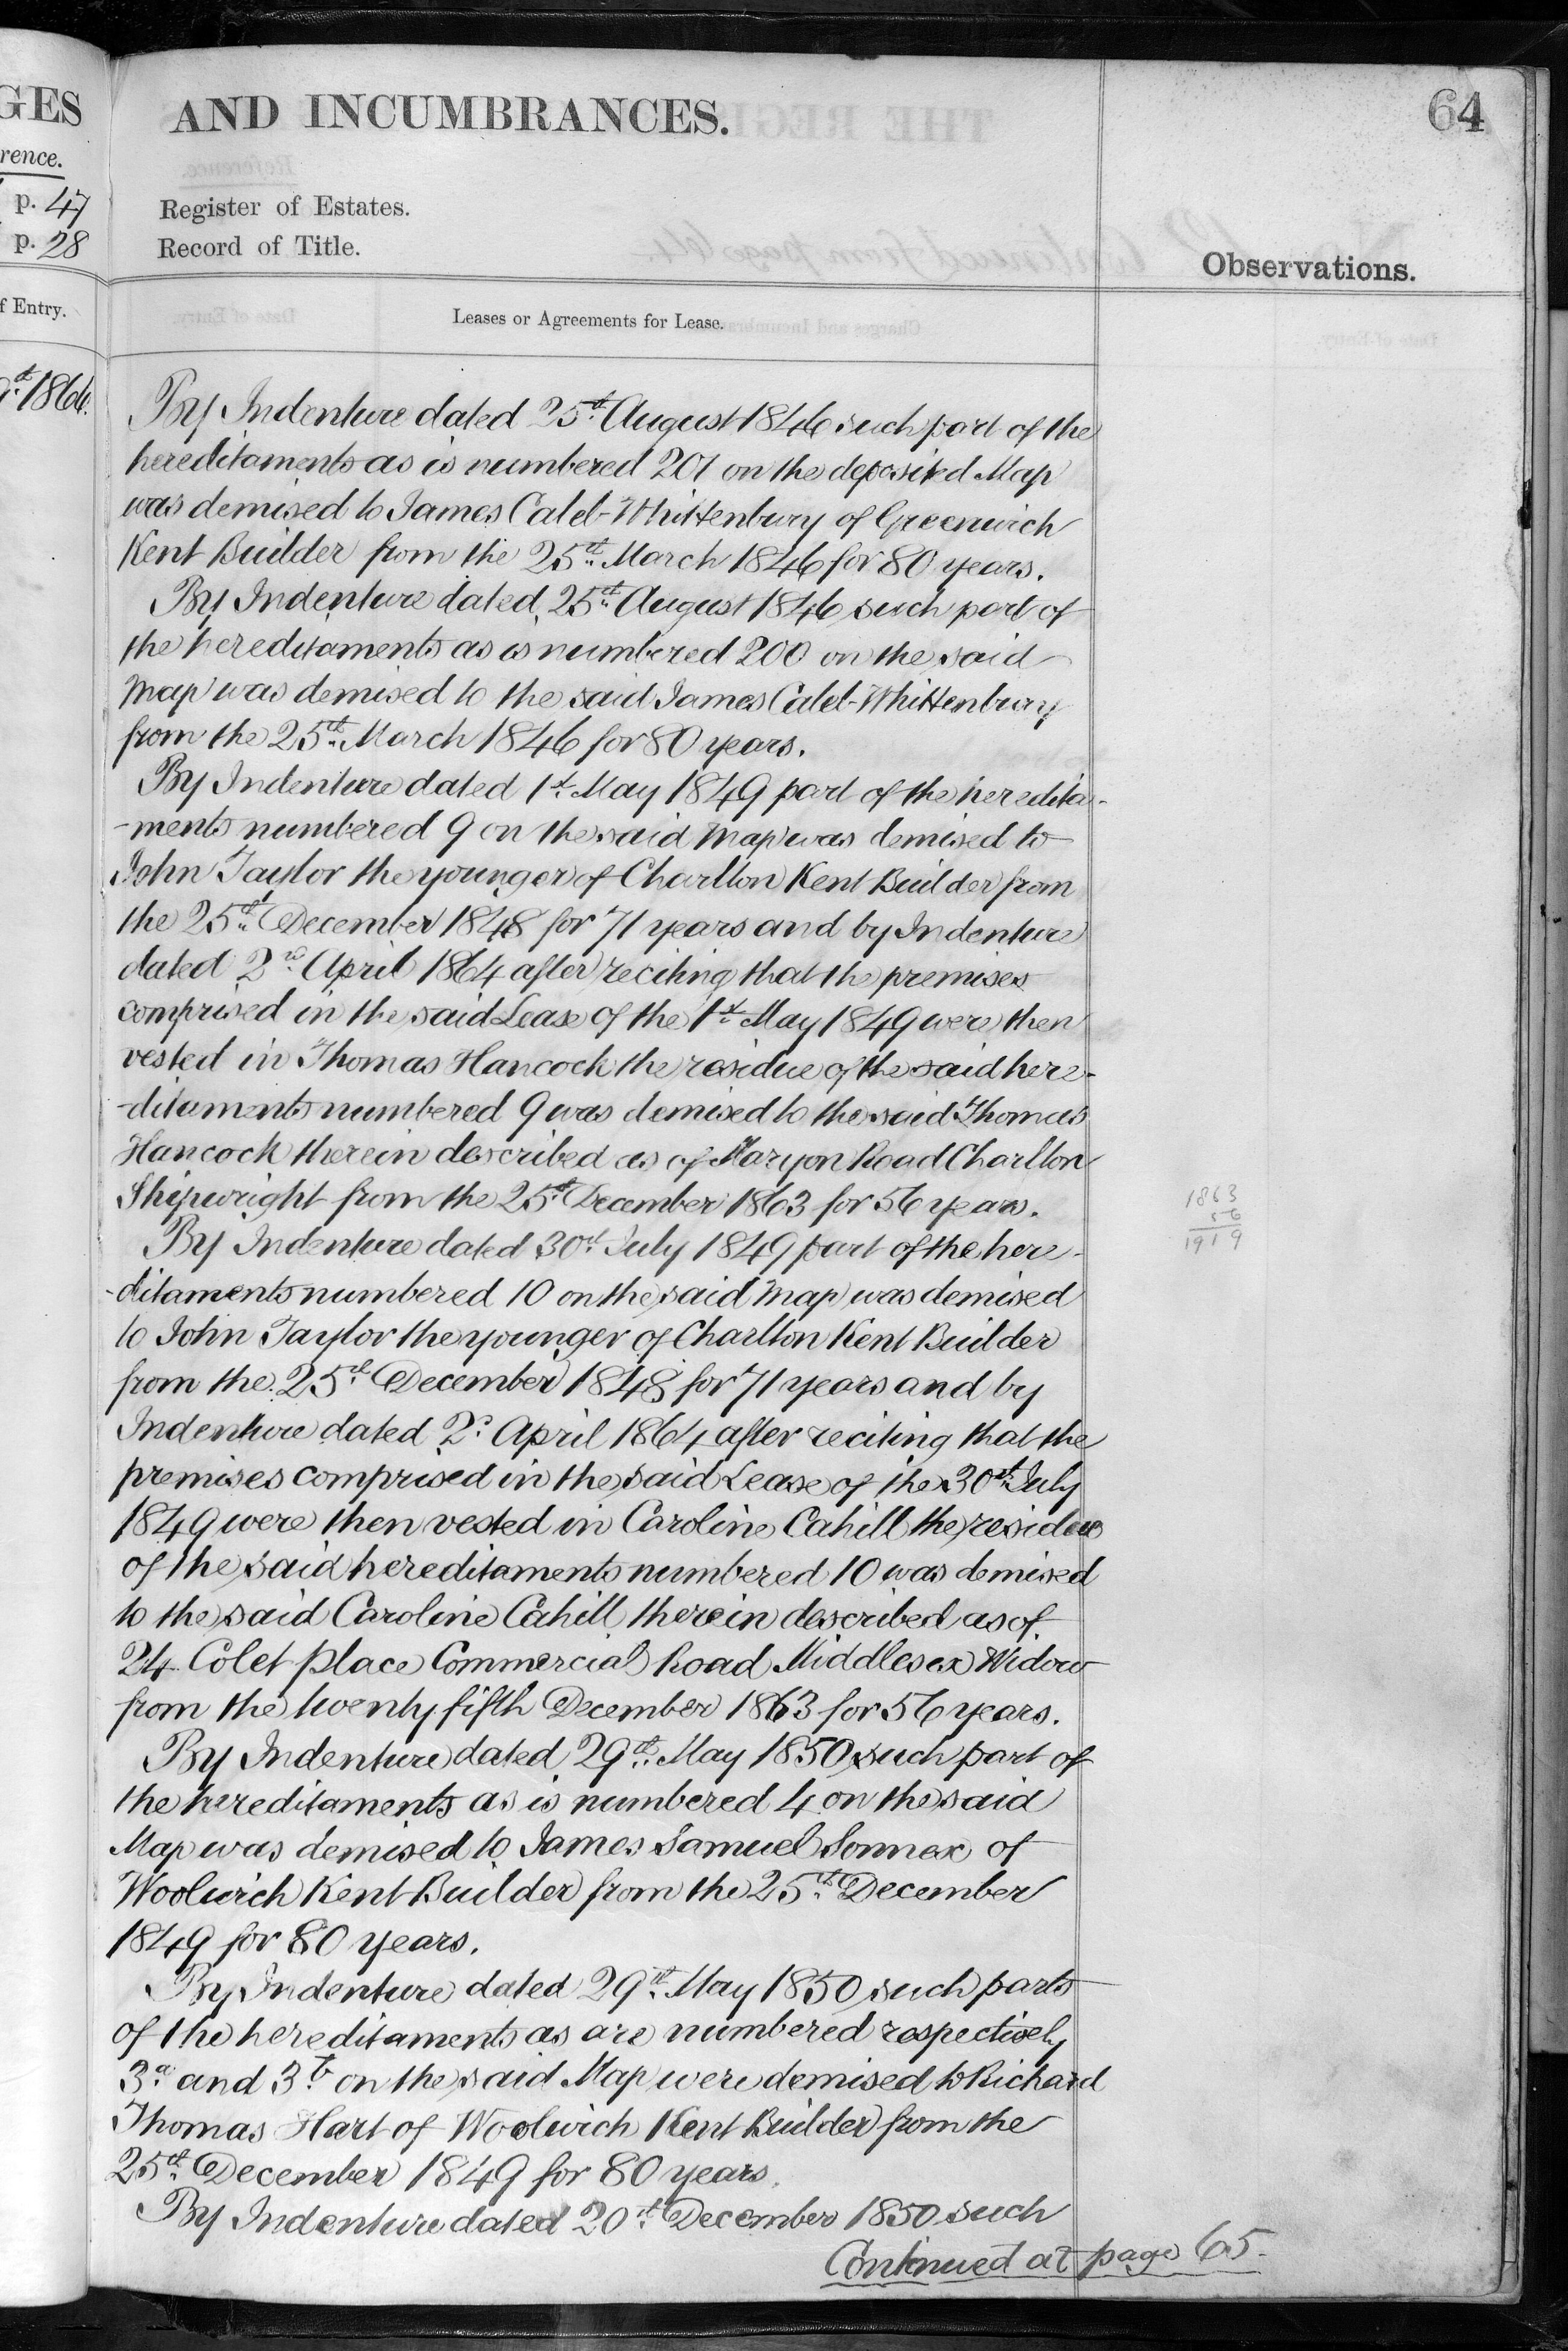 GES
rence.
p. 47
p. 28
f Entry.
1864.
AND INCUMBRANCES.
64
Register of Estates.
Record of Title.
Observations.
Leases or Agreements for Lease.
By Indenture dated 25th August 1846 such part of the
hereditaments as is numbered 201 on the deposited Map
was demised to James Caleb Whittenbury of Greenwich
Kent Builder from the 25th March 1846 for 80 years.
By Indenture dated 25th August 1846 such part of
the hereditaments as is numbered 200 on the said
Map was demised to the said James Caleb Whittenbury
from the 25th March 1846 for 80 years.
By Indenture dated 1st May 1849 part of the heredita-
-ments numbered 9 on the said Map was demised to
John Taylor the younger of Charlton Kent Builder from
the 25th December 1848 for 71 years and by Indenture
dated 2nd April 1864 after reciting that the premises
comprised in the said Lease of the 1st May 1849 were then
vested in Thomas Hancock the residue of the said here-
-ditaments numbered 9 was demised to the said Thomas
Hancock therein described as of Maryon Road Charlton
Shipwright from the 25th December 1863 for 56 years.
1863
56
1919
By Indenture dated 30th July 1849 part of the here-
-ditaments numbered 10 on the said Map was demised
to John Taylor the younger of Charlton Kent Builder
from the 25th December 1848 for 71 years and by
Indenture dated 2d April 1864 after reciting that the
premises comprised in the said Lease of the 30th July
1849 were then vested in Caroline Cahill the residue
of the said hereditaments numbered 10 was demised
to the said Caroline Cahill therein described as of
24 Colet place Commercial Road Middlesex Widow
from the twenty fifth December 1863 for 56 years.
By Indenture dated 29th May 1850 such part of
the hereditaments as is numbered 4 on the said
Map was demised to James Samuel Sonnex of
Woolwich Kent Builder from the 25th December
1849 for 80 years.
By Indenture dated 29th May 1850 such parts
of the hereditaments as are numbered respectively
3a and 3b on the said Map were demised to Richard
Thomas Hart of Woolwich Kent Builder from the
25th December 1849 for 80 years.
By Indenture dated 20th December 1850 such
Continued at page 65.